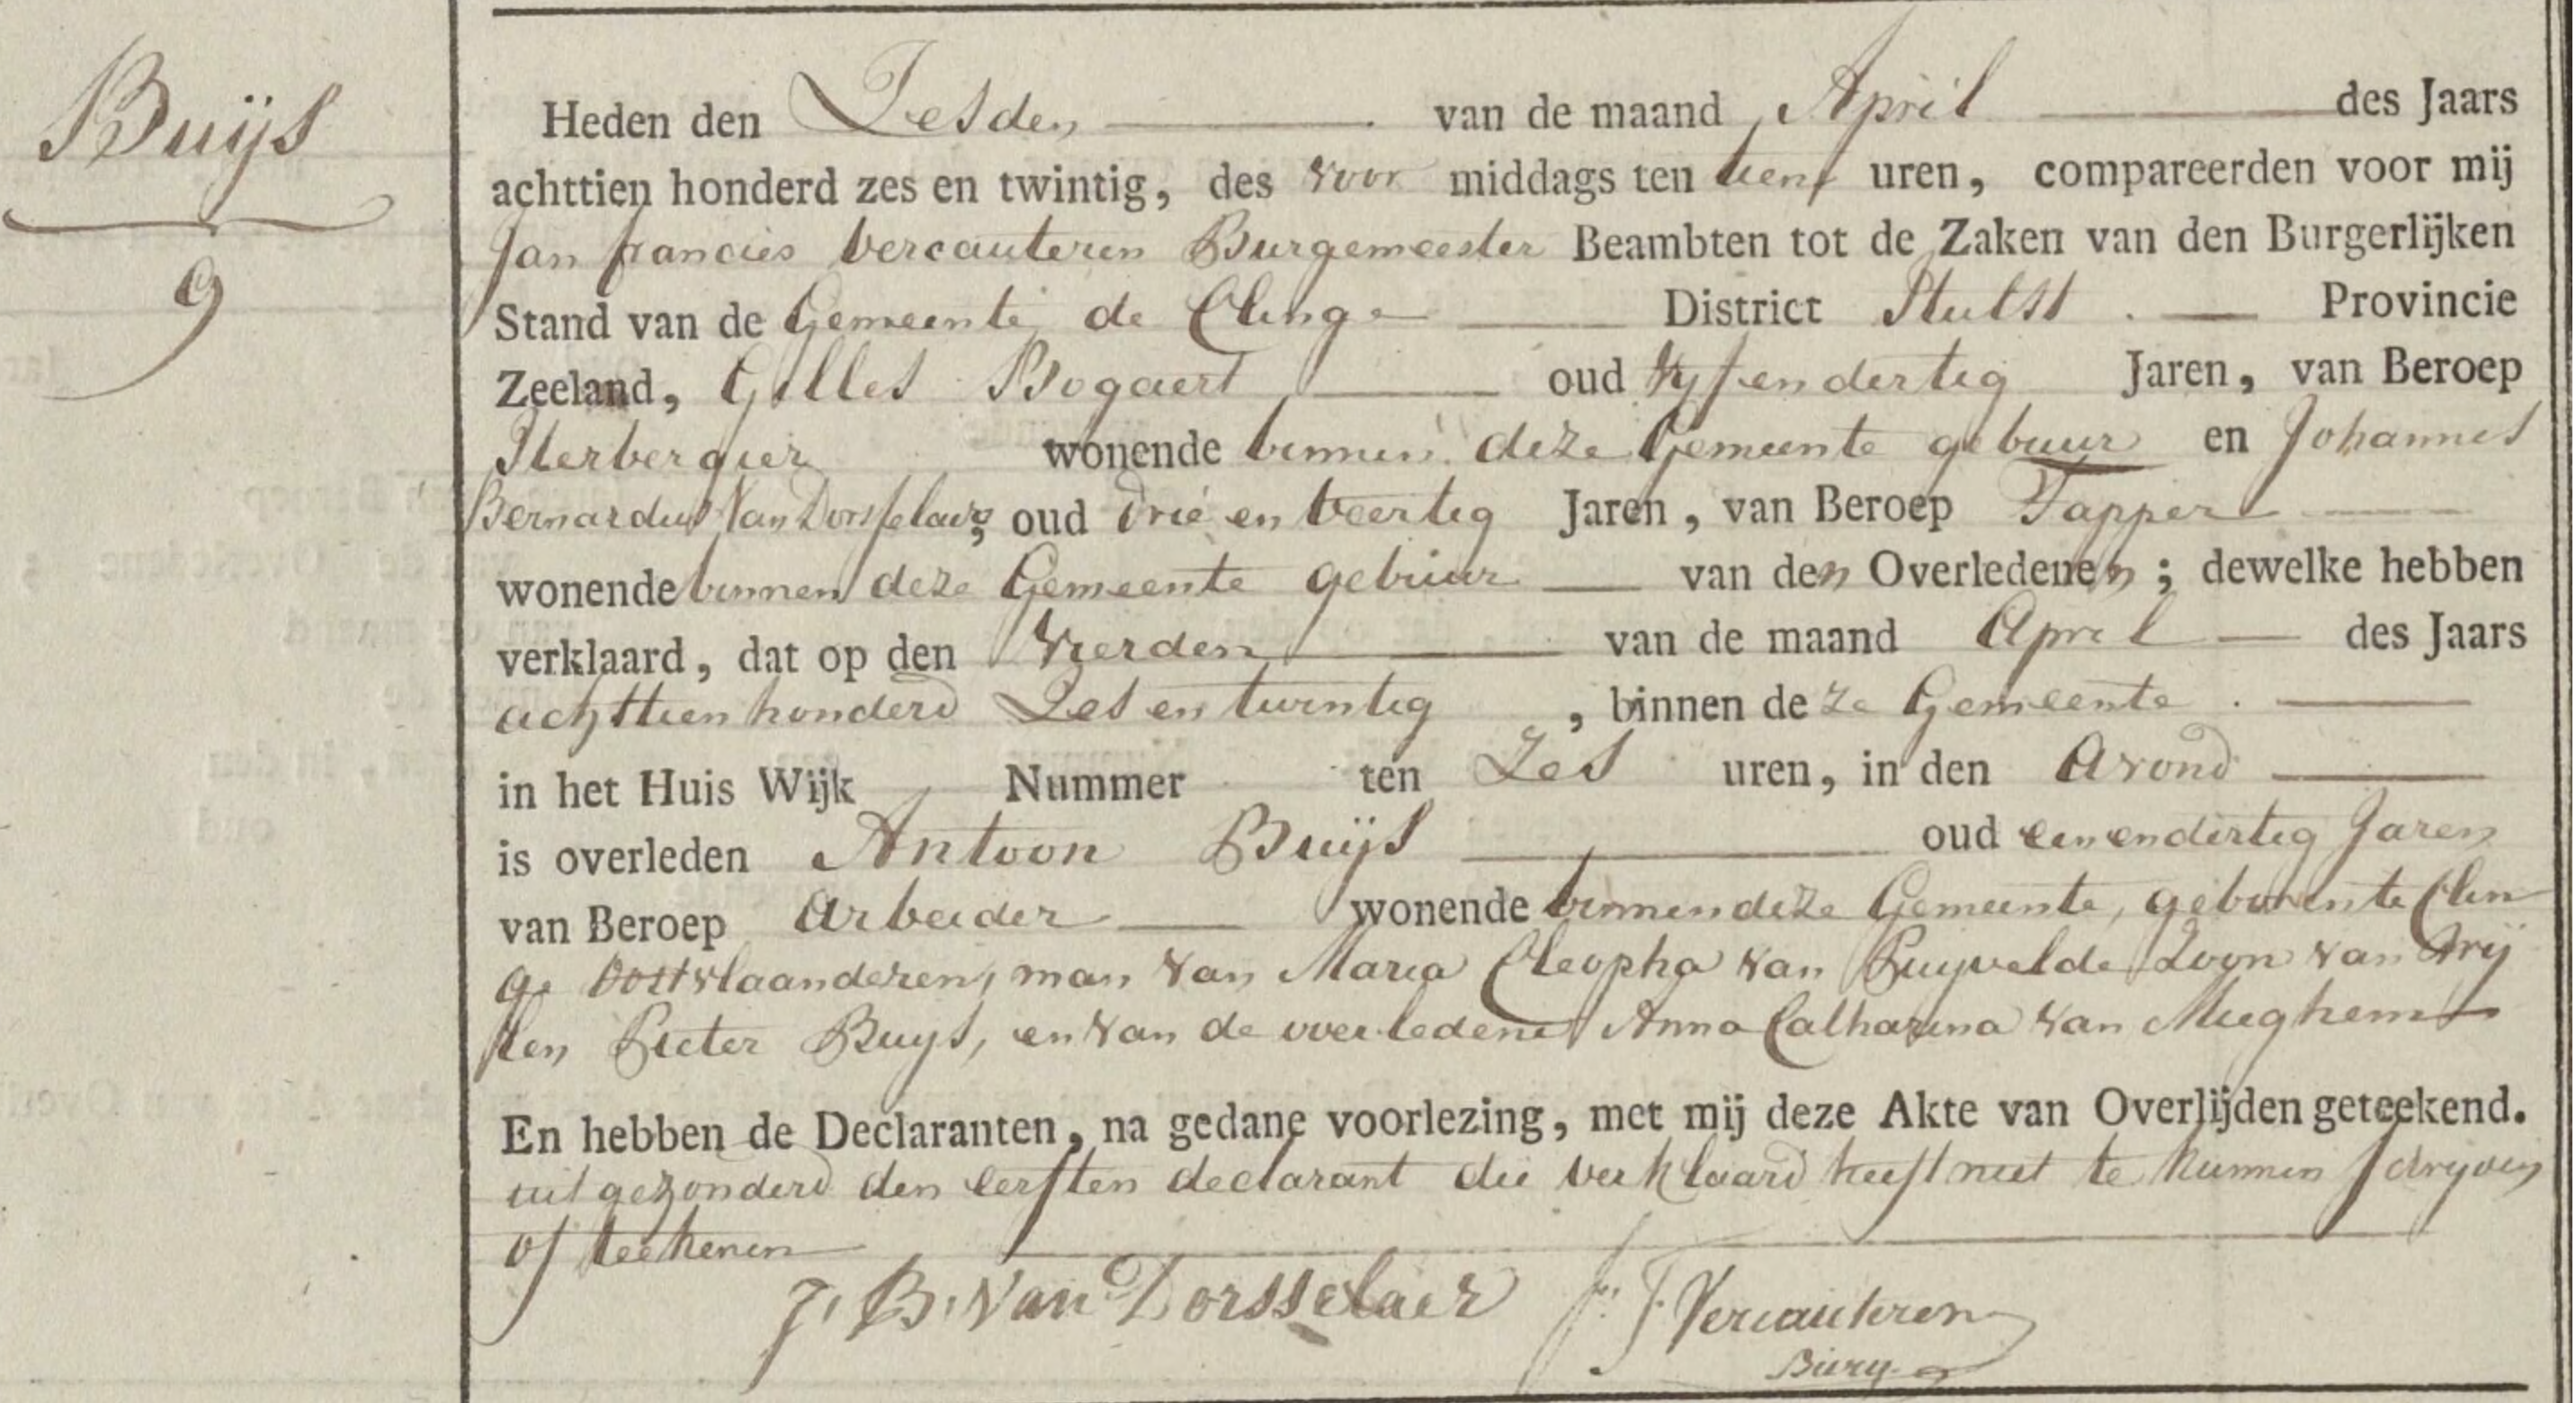 Buijs
9
Heden den Zesden van de maand April des Jaars
achttien honderd zes en twintig, des voor middags ten tien uren, compareerden voor mij
Jan francies Vercauteren Burgemeester Beambten tot de Zaken van den Burgerlijken
Stand van de Gemeente de Clinge District Hulst . Provincie
Zeeland, Gilles Bogaert oud Vyfendertig Jaren, van Beroep
Herbergier wonende binnen deze Gemeente gebuur en Johannes
Bernardus Van Dorsselaer, oud drie en veertig Jaren, van Beroep Tapper
wonende binnen deze Gemeente gebuur van den Overledenen ; dewelke hebben
verklaard, dat op den vierden van de maand April des Jaars
achttien honderd Zes en twintig , binnen deze Gemeente .
in het Huis Wijk Nummer ten Zes uren, in den Avond
is overleden Antoon Buijs oud eenendertig Jaren
van Beroep Arbeider wonende binnen deze Gemeente, geboren te Clin
ge Oostvlaanderen, man van Maria Cleopha van Puyvelde Zoon van
Pieter Buys, en van de overledene Anna Catharina van Mieghem
En hebben de Declaranten, na gedane voorlezing, met mij deze Akte van Overlijden geteekend.
uitgezonderd den eersten declarant die verklaard heeft niet te kunnen schryven
of teekenen
J. B. Van Dorsselaer J. F. Vercauteren
Burg.